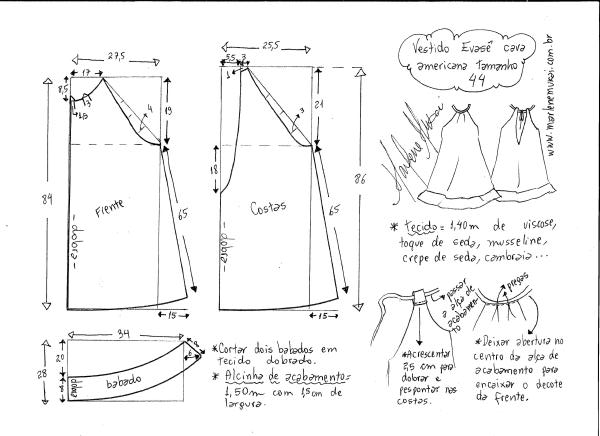 Vestido Evasê cava
americana Tamanho
44
www.marlenemukai.com.br
Marlene Mukai
27,5
17
8,5
3
1,5
4
19
84
65
Frente
dobra
15
25,5
5,5
3
1
3
21
18
86
65
Costas
dobra
15
* tecido = 1,40m de viscose,
toque de seda, musseline,
crepe de seda, cambraia...
34
20
28
8
8
6
dobra
babado
*Cortar dois babados em
tecido dobrado.
* Alcinha de acabamento =
1,50m com 1,5cm de
largura.
passar
a alça de
acabamen-
to
pregas
*Acrescentar
2,5 cm para
dobrar e
pespontar nas
costas.
*Deixar abertura no
centro da alça de
acabamento para
encaixar o decote
da frente.